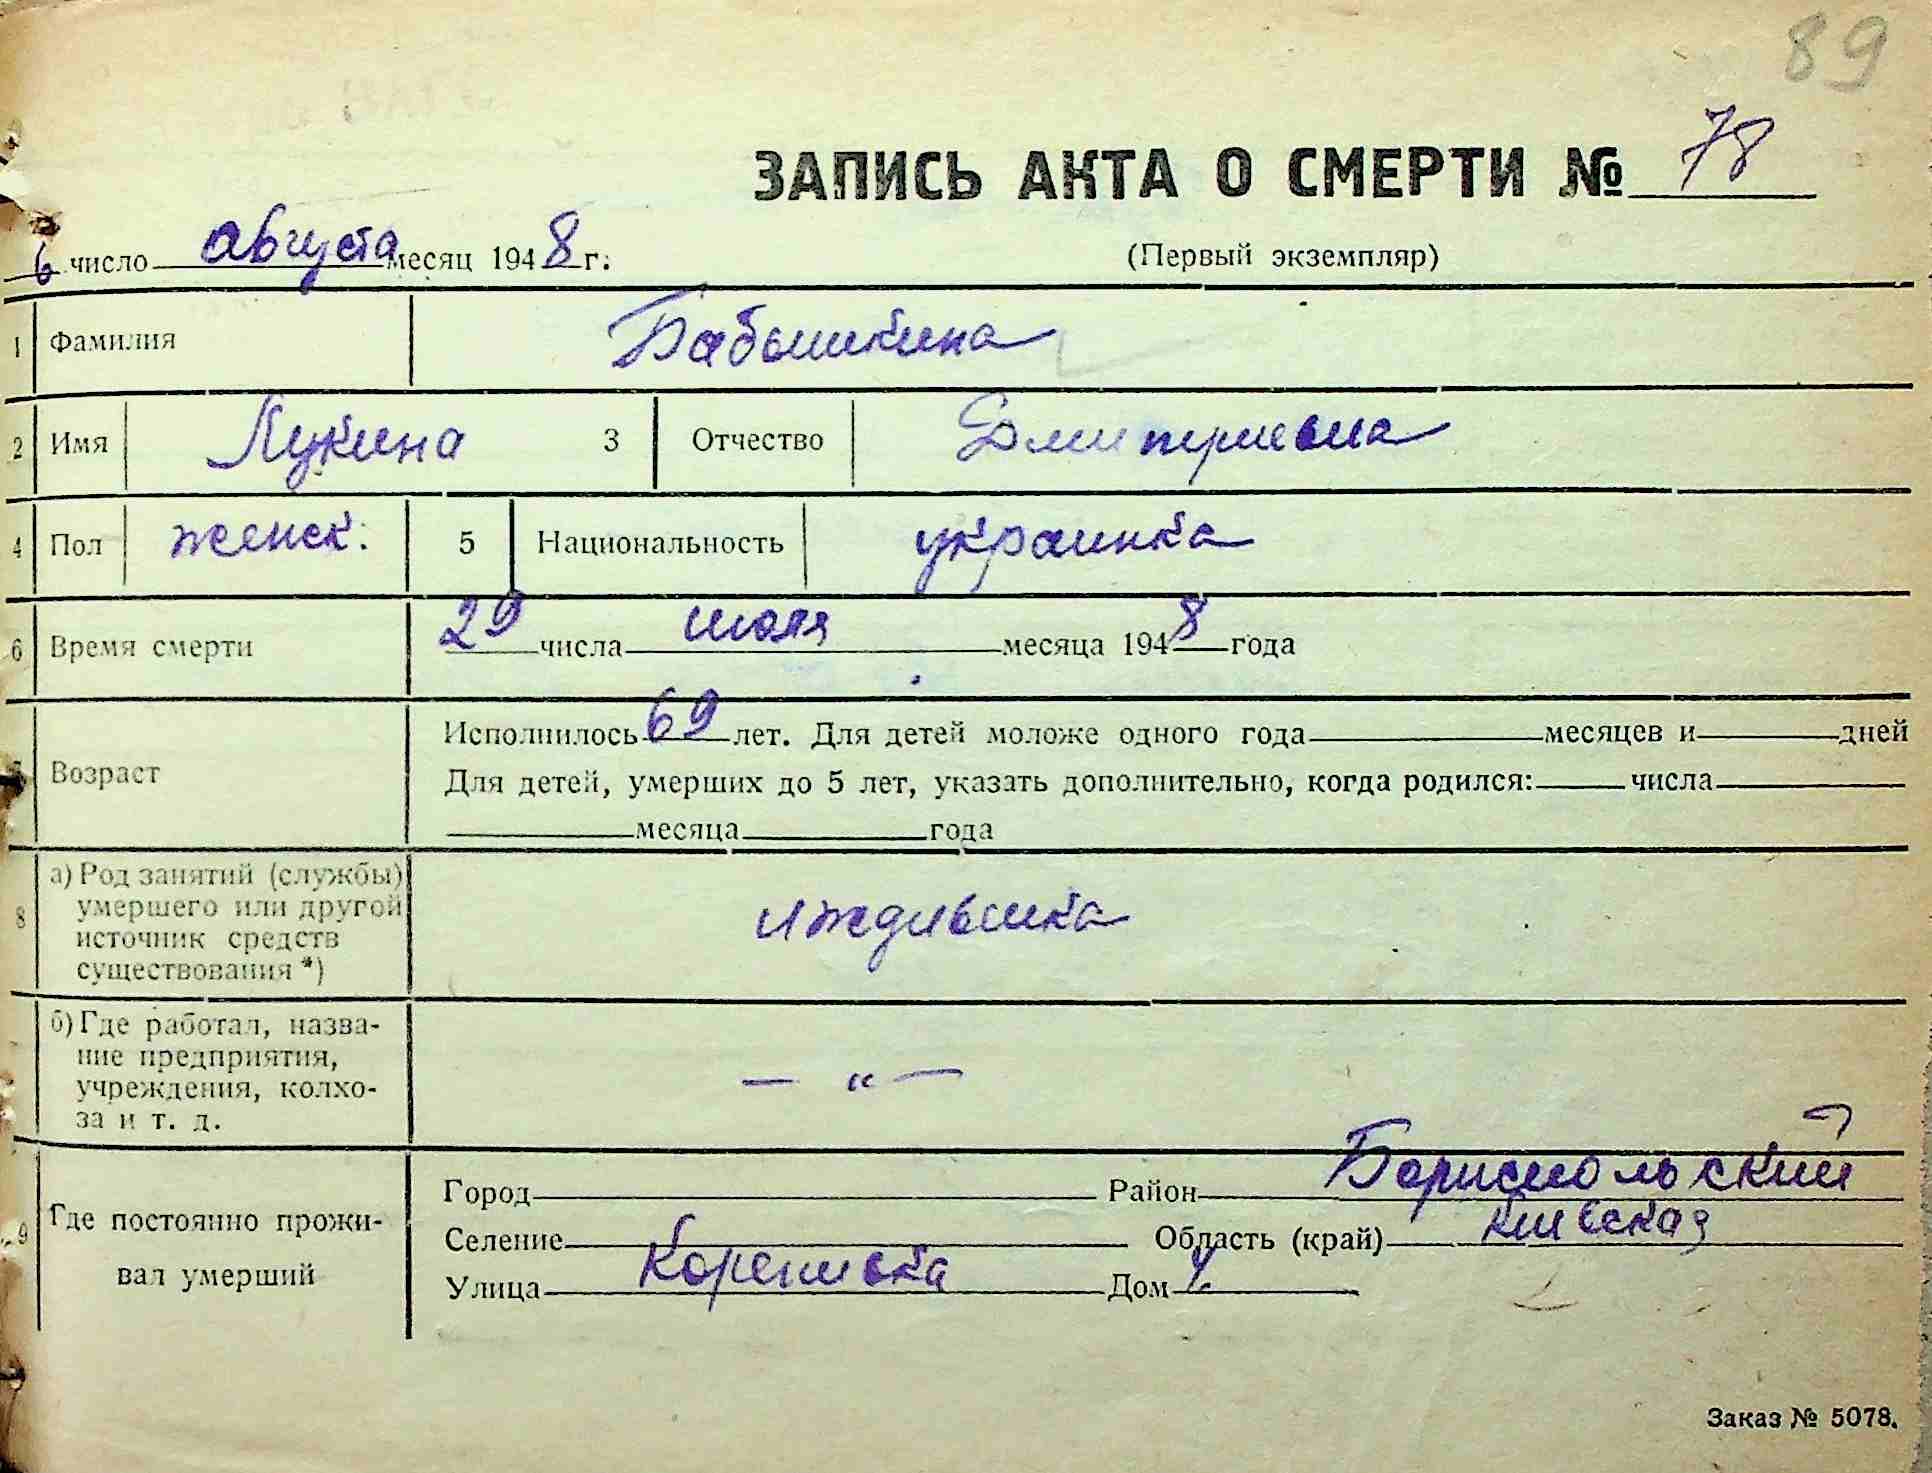 89
ЗАПИСЬ АКТА О СМЕРТИ № 78
6 число августа месяц 1948 г.
(Первый экземпляр)
1 Фамилия Бабышкина
2 Имя Лукина 3 Отчество Дмитриевна
4 Пол женск. 5 Национальность украинка
6 Время смерти 29 числа июля месяца 1948 года
Возраст
Исполнилось 69 лет. Для детей моложе одного года месяцев и дней
Для детей, умерших до 5 лет, указать дополнительно, когда родился: числа
месяца года
8 а) Род занятий (службы)
умершего или другой
источник средств
существования *)
иждивенка
б) Где работал, назва-
ние предприятия,
учреждения, колхо-
за и т. д.
— „ —
9 Где постоянно прожи-
вал умерший
Город Район Бориспольский
Селение Область (край) Киевская
Улица Дом
Заказ № 5078.